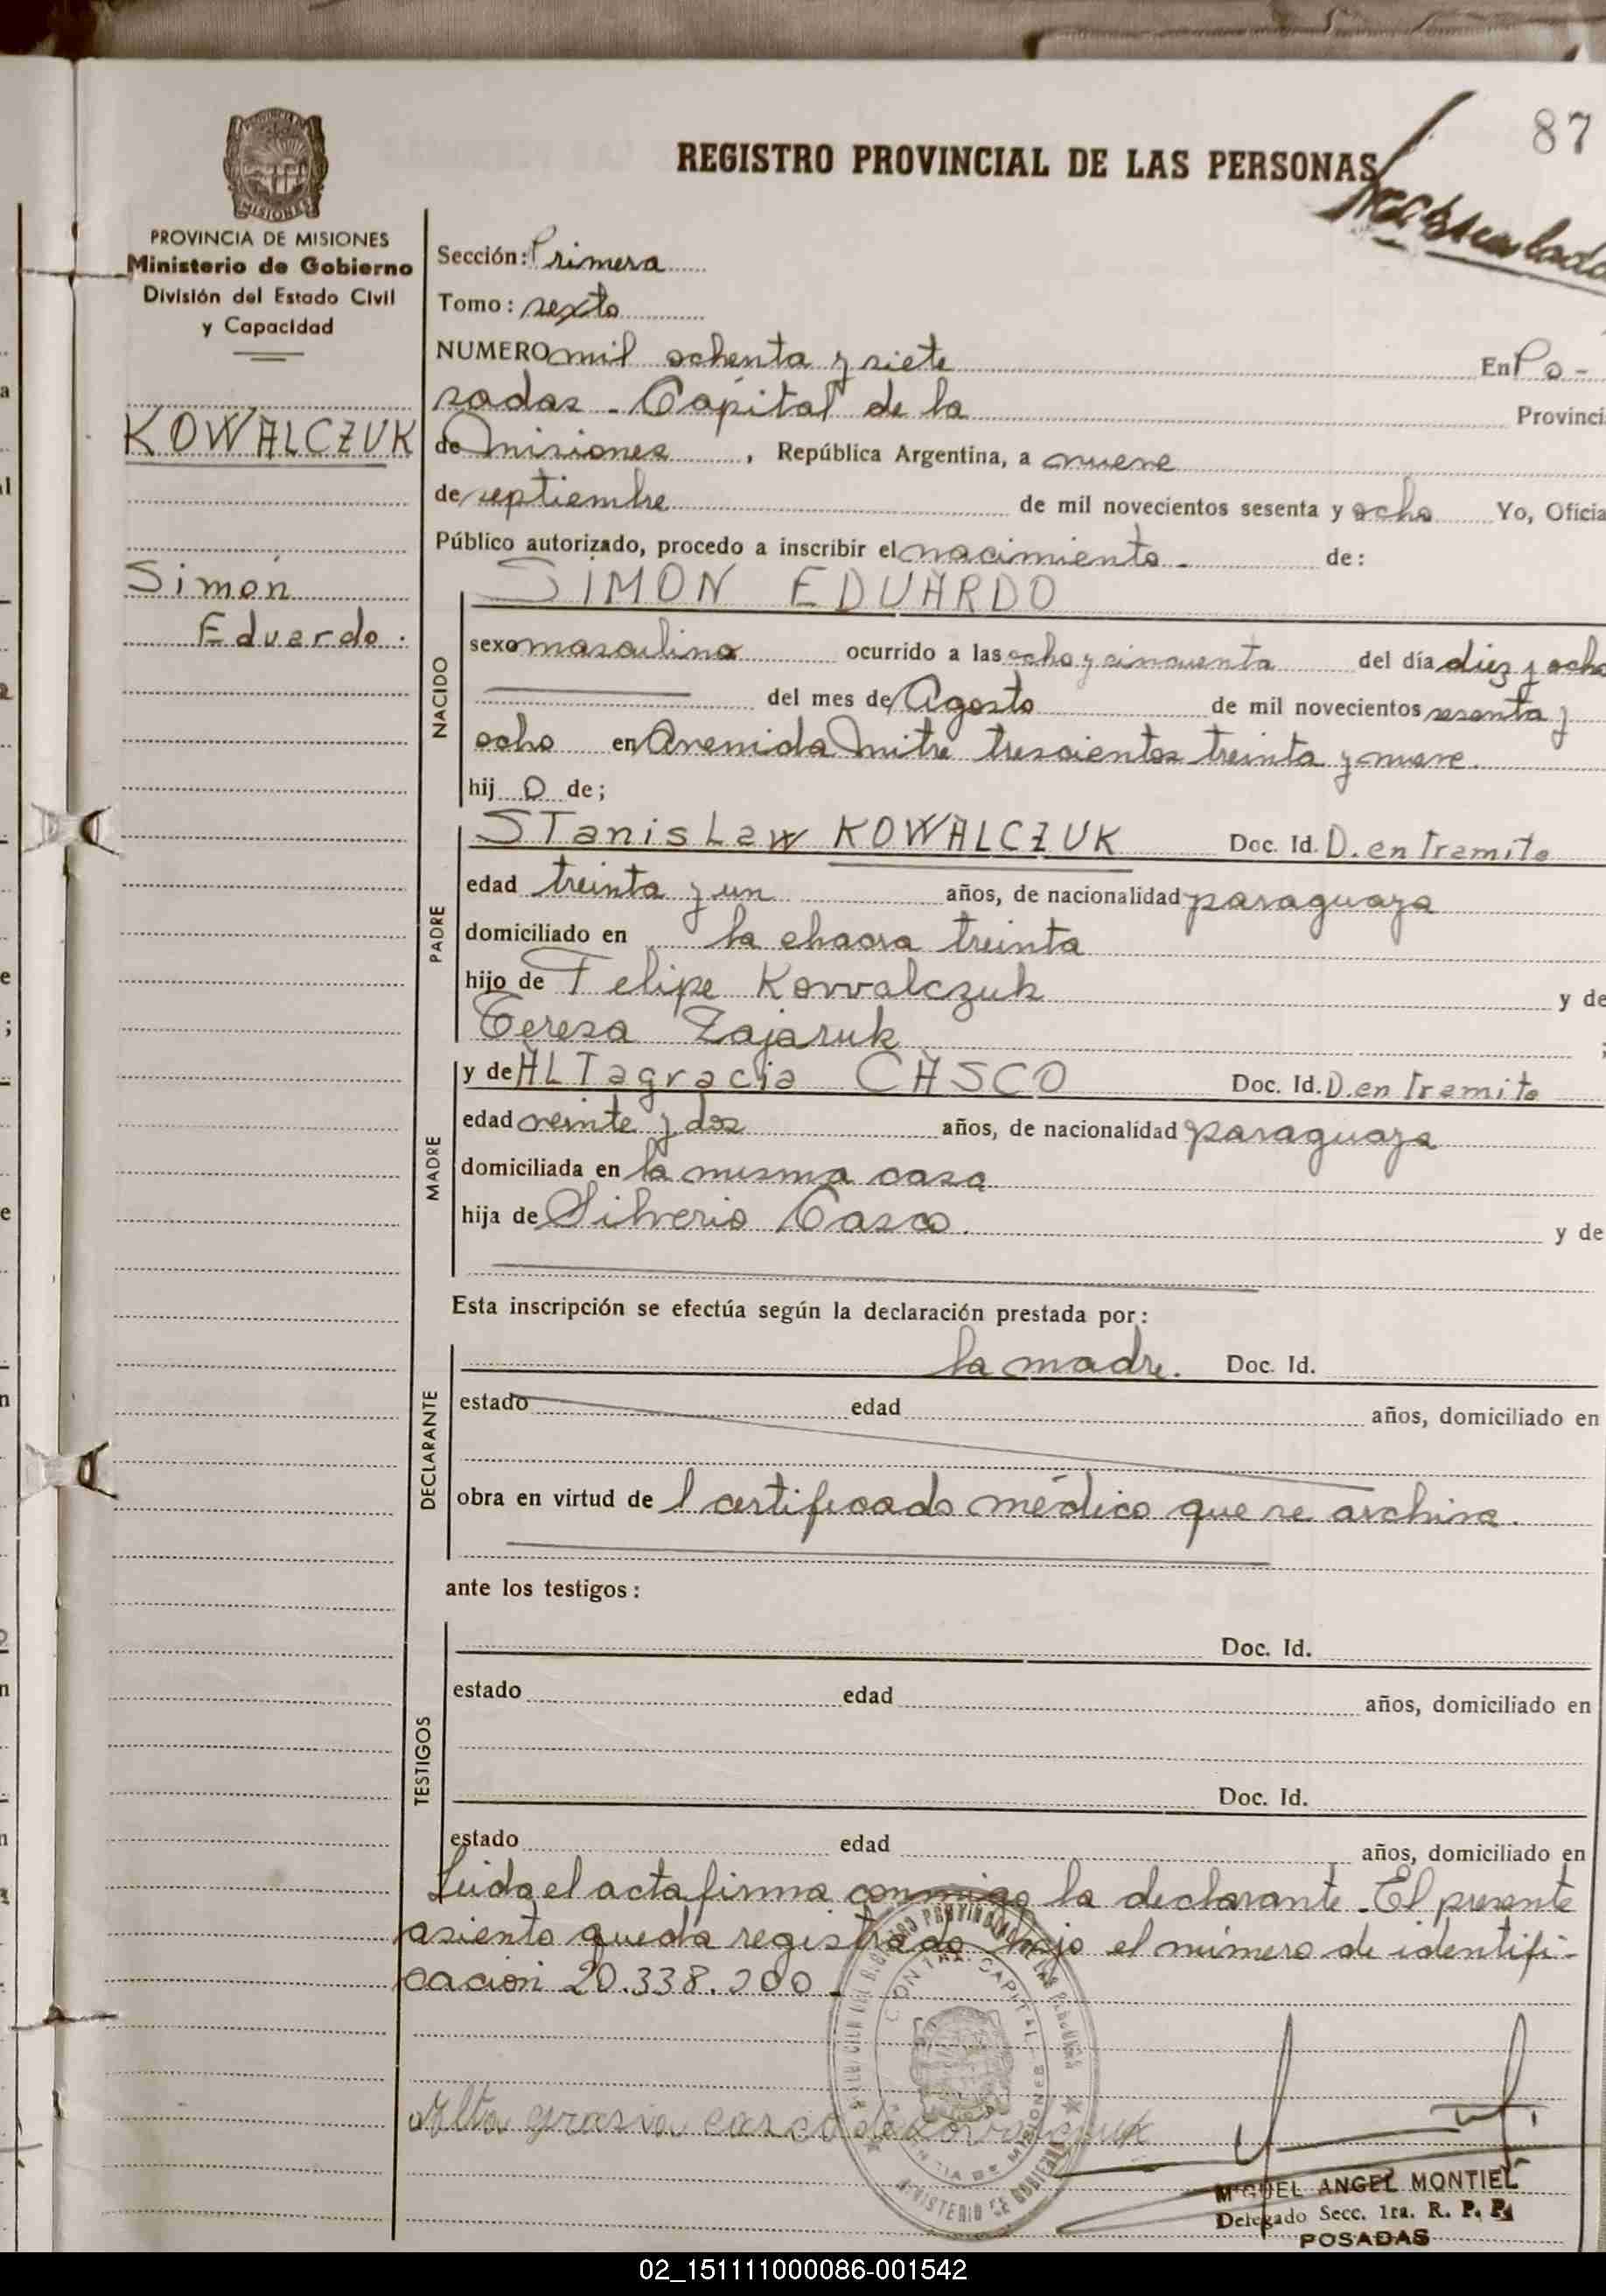 87
REGISTRO PROVINCIAL DE LAS PERSONAS
MISIONES
PROVINCIA DE MISIONES
Ministerio de Gobierno
División del Estado Civil
y Capacidad
KOWALCZUK
Simón
Eduardo.
Sección: Primera
Tomo: sexto
NUMERO mil ochenta y siete En Po-
sadas - Capital de la Provinci
de Misiones, República Argentina, a nueve
de septiembre de mil novecientos sesenta y ocho Yo, Oficia
Público autorizado, procedo a inscribir el nacimiento. de:
NACIDO
SIMON EDUARDO
sexo masculino ocurrido a las ocho y cincuenta del día diez y ocho
del mes de Agosto de mil novecientos sesenta y
ocho en Avenida Mitre trescientos treinta y nueve.
hij o de;
PADRE
STanisLaw KOWALCZUK Doc. Id. D. en Tramite
edad treinta y un años, de nacionalidad paraguaya
domiciliado en la chacra treinta
hijo de Felipe Kowalczuk y de
Teresa Zajaruk ;
MADRE
y de ALTagracia CASCO Doc. Id. D. en Tramite
edad veinte y dos años, de nacionalidad paraguaya
domiciliada en la misma casa
hija de Silverio Casco. y de
Esta inscripción se efectúa según la declaración prestada por:
DECLARANTE
la madre. Doc. Id.
estado edad años, domiciliado en
obra en virtud de l certificado médico que se archiva.
ante los testigos:
TESTIGOS
Doc. Id.
estado edad años, domiciliado en
Doc. Id.
estado edad años, domiciliado en
Leida el acta firma conmigo la declarante. El presente
asiento queda registrado bajo el número de identifi-
cación 20.338.200.
Alta grasia casco de
MIGUEL ANGEL MONTIEL
Delegado Secc. 1ra. R. P. P.
POSADAS
02_151111000086-001542